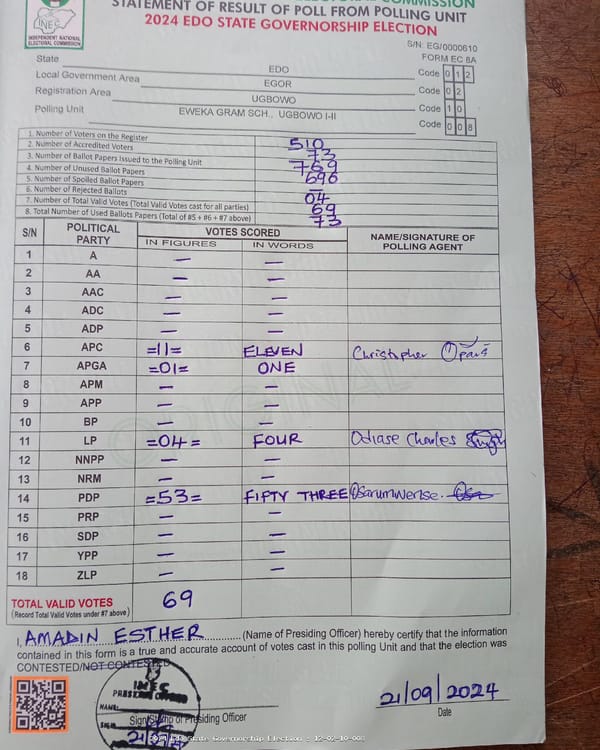 STATEMENT OF RESULT OF POLL FROM POLLING UNIT
2024 EDO STATE GOVERNORSHIP ELECTION
INEC
INDEPENDENT NATIONAL
ELECTORAL COMMISSION
S/N: EG/0000610
FORM EC 8A
State EDO Code 0 1 2
Local Government Area EGOR Code 0 2
Registration Area UGBOWO Code 1 0
Polling Unit EWEKA GRAM SCH., UGBOWO I-II Code 0 0 8
1. Number of Voters on the Register 510
2. Number of Accredited Voters 73
3. Number of Ballot Papers Issued to the Polling Unit 769
4. Number of Unused Ballot Papers 696
5. Number of Spoiled Ballot Papers —
6. Number of Rejected Ballots 04
7. Number of Total Valid Votes (Total Valid Votes cast for all parties) 69
8. Total Number of Used Ballots Papers (Total of #5 + #6 + #7 above) 73
S/N POLITICAL PARTY VOTES SCORED NAME/SIGNATURE OF POLLING AGENT
IN FIGURES IN WORDS
1 A — —
2 AA — —
3 AAC — —
4 ADC — —
5 ADP — —
6 APC =11= ELEVEN Christopher
7 APGA =01= ONE
8 APM — —
9 APP — —
10 BP — —
11 LP =04= FOUR Odiase Charles
12 NNPP — —
13 NRM — —
14 PDP =53= FIFTY THREE
15 PRP — —
16 SDP — —
17 YPP — —
18 ZLP — —
TOTAL VALID VOTES 69
(Record Total Valid Votes under #7 above)
I, AMADIN ESTHER (Name of Presiding Officer) hereby certify that the information
contained in this form is a true and accurate account of votes cast in this polling Unit and that the election was
CONTESTED/NOT CONTESTED
INEC
PRESIDING OFFICER
NAME:
SIGN:
Sign/Stamp of Presiding Officer
21/09/2024
Date
State Governorship Election : 12-02-10-008